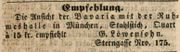 Empfehlung.
Die Ansicht der Bavaria mit der Ruh-
meshalle in München, Stahlstich, Quart
à 15 kr. empfiehlt G. Löwensohn,
Sterngasse Nro. 175.